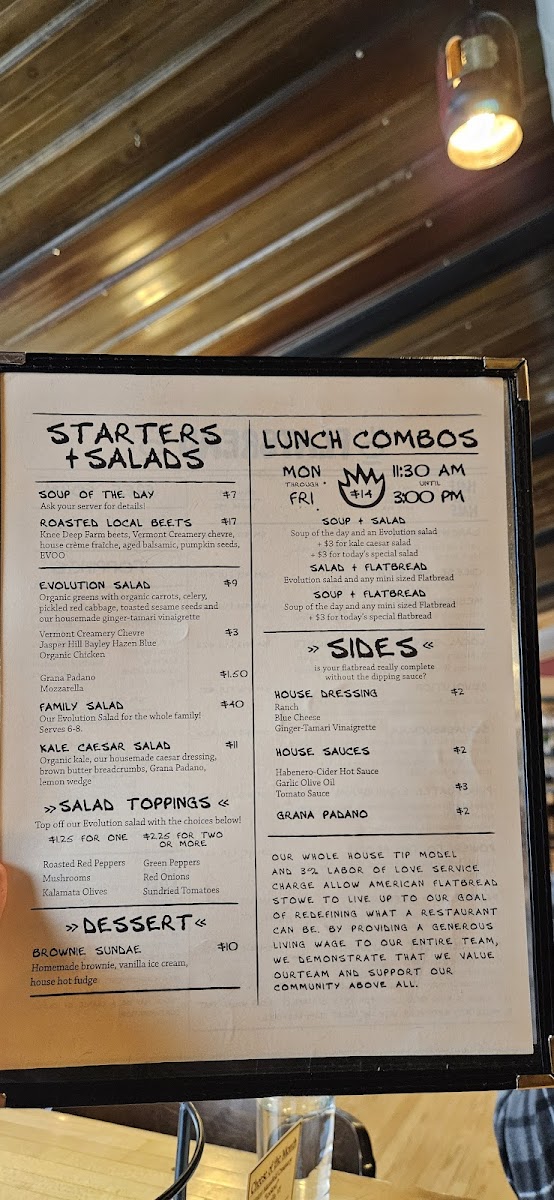 STARTERS
+ SALADS
SOUP OF THE DAY $7
Ask your server for details!
ROASTED LOCAL BEETS $17
Knee Deep Farm beets, Vermont Creamery chevre,
house crème fraîche, aged balsamic, pumpkin seeds,
EVOO
EVOLUTION SALAD $9
Organic greens with organic carrots, celery,
pickled red cabbage, toasted sesame seeds and
our housemade ginger-tamari vinaigrette
Vermont Creamery Chevre $3
Jasper Hill Bayley Hazen Blue
Organic Chicken
Grana Padano $1.50
Mozzarella
FAMILY SALAD $40
Our Evolution Salad for the whole family!
Serves 6-8.
KALE CAESAR SALAD $11
Organic kale, our housemade caesar dressing,
brown butter breadcrumbs, Grana Padano,
lemon wedge
»SALAD TOPPINGS«
Top off our Evolution salad with the choices below!
$1.25 FOR ONE $2.25 FOR TWO
OR MORE
Roasted Red Peppers Green Peppers
Mushrooms Red Onions
Kalamata Olives Sundried Tomatoes
»DESSERT«
BROWNIE SUNDAE $10
Homemade brownie, vanilla ice cream,
house hot fudge
LUNCH COMBOS
MON 11:30 AM
THROUGH $14 UNTIL
FRI 3:00 PM
SOUP + SALAD
Soup of the day and an Evolution salad
+ $3 for kale caesar salad
+ $3 for today's special salad
SALAD + FLATBREAD
Evolution salad and any mini sized Flatbread
SOUP + FLATBREAD
Soup of the day and any mini sized Flatbread
+ $3 for today's special flatbread
» SIDES «
is your flatbread really complete
without the dipping sauce?
HOUSE DRESSING $2
Ranch
Blue Cheese
Ginger-Tamari Vinaigrette
HOUSE SAUCES $2
Habenero-Cider Hot Sauce
Garlic Olive Oil $3
Tomato Sauce
GRANA PADANO $2
OUR WHOLE HOUSE TIP MODEL
AND 3% LABOR OF LOVE SERVICE
CHARGE ALLOW AMERICAN FLATBREAD
STOWE TO LIVE UP TO OUR GOAL
OF REDEFINING WHAT A RESTAURANT
CAN BE. BY PROVIDING A GENEROUS
LIVING WAGE TO OUR ENTIRE TEAM,
WE DEMONSTRATE THAT WE VALUE
OURTEAM AND SUPPORT OUR
COMMUNITY ABOVE ALL.
Cheese of the Month